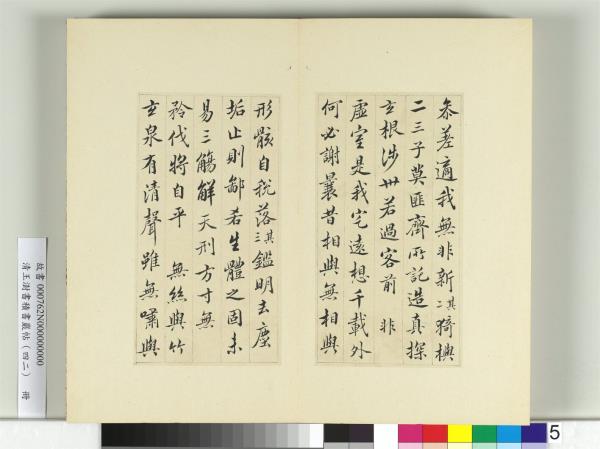 參差適我無非新 其二 猗與
二三子莫匪齊所託造真探
玄根涉世若過客前 非
虛室是我宅遠想千載外
何必謝曩昔相與無相與
形骸自脫落 其三 鑑明去塵
垢止則鄙吝生體之固未
易三觴解天刑方寸無
矜伐將自平 無絲與竹
玄泉有清聲雖無嘯與
故書 000762N000000000
清王澍書積書巖帖(四二) 冊
5